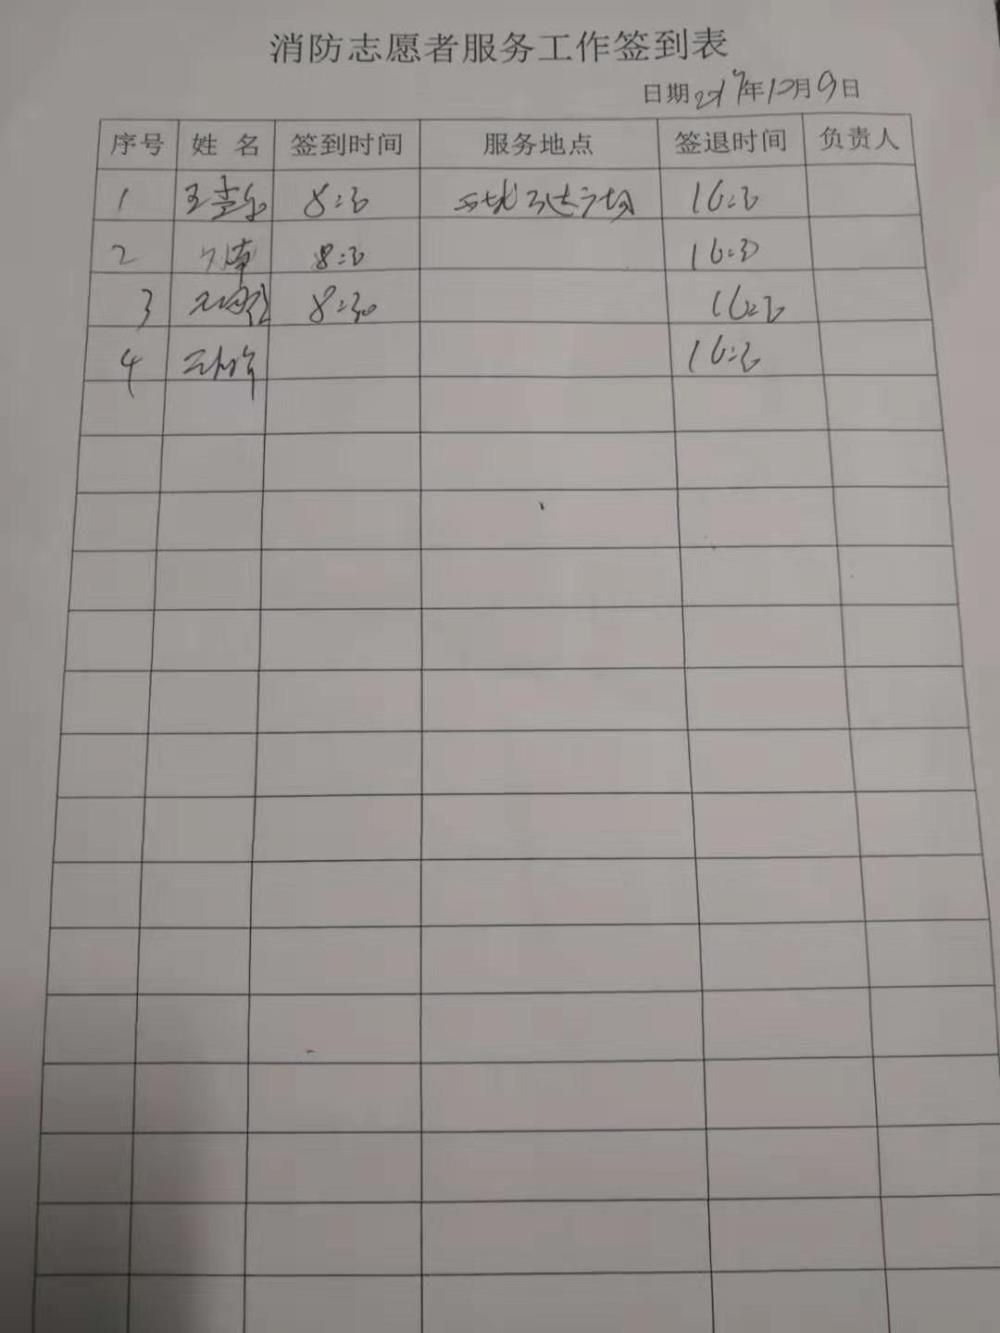 消防志愿者服务工作签到表
日期2017年12月9日
序号 姓名 签到时间 服务地点 签退时间 负责人
1 8:30 万达广场 16:30
2 8:30 16:30
3 8:30 16:30
4 16:30